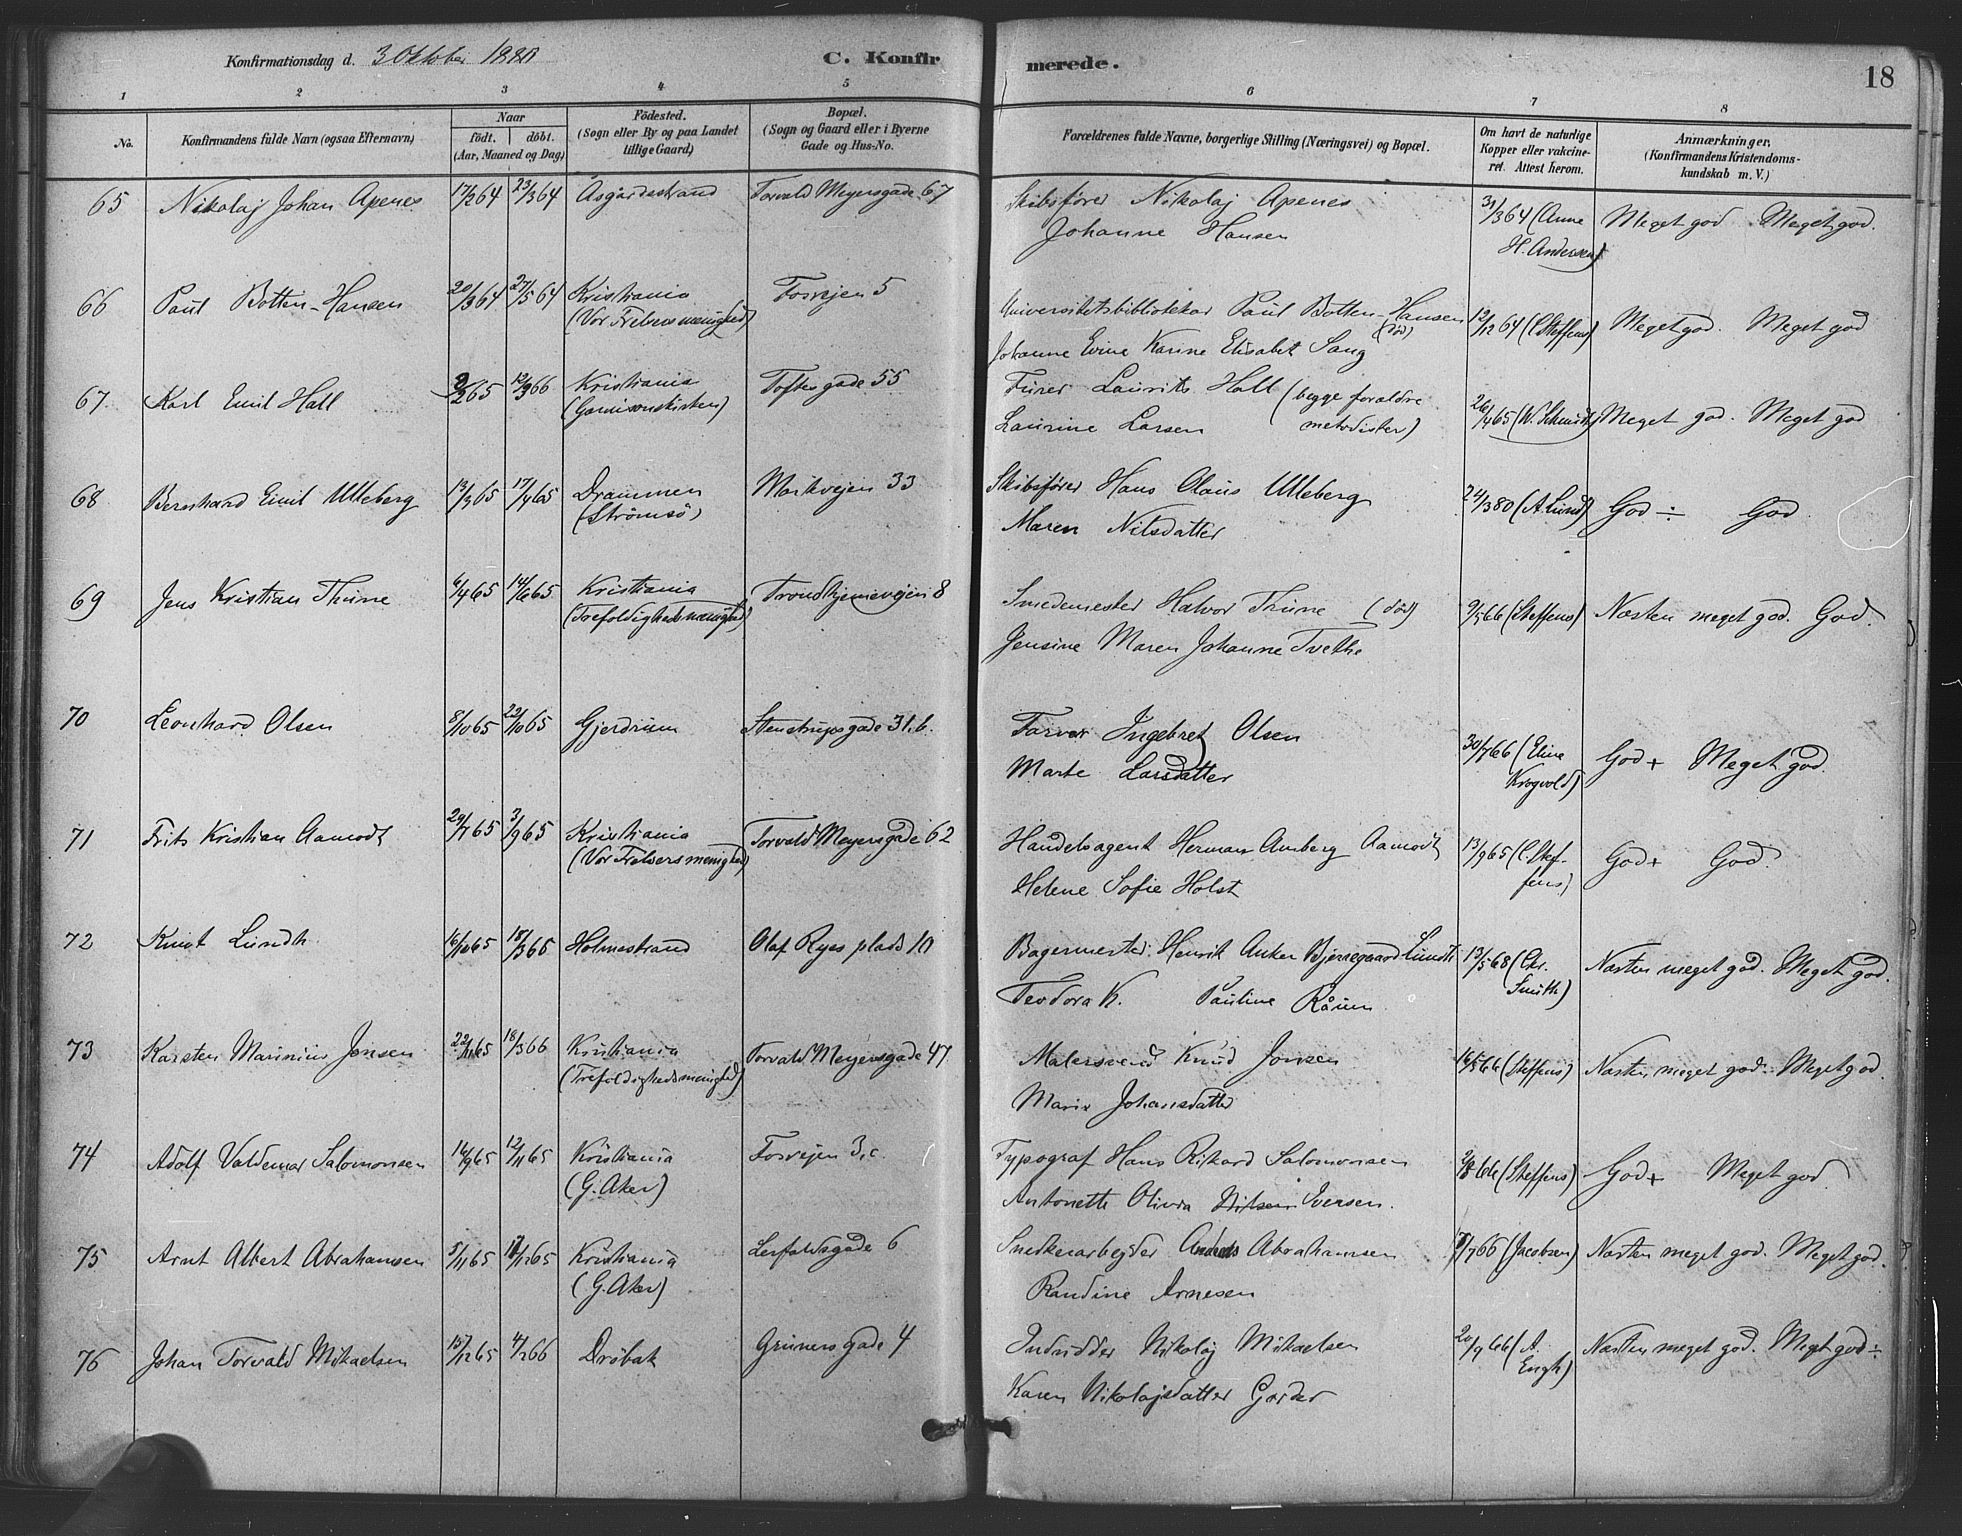 Konfirmationsdag d. 3 Oktober 1880 C. Konfirmerede. 18
1 2 3 4 5 6 7 8
No. Konfirmandens fulde Navn (ogsaa Efternavn) Naar født. døbt. (Aar, Maaned og Dag) Födested. (Sogn eller By og paa Landet tillige Gaard) Bopæl. (Sogn og Gaard eller i Byerne Gade og Hus-No. Forældrenes fulde Navne, borgerlige Stilling (Næringsvei) og Bopæl. Om havt de naturlige Kopper eller vakcineret. Attest herom. Anmærkninger. (Konfirmandens Kristendomskundskab m. V.)
65 Nikolaj Johan Apenes 17/2 64 23/3 64 Åsgårdstrand Torvald Meyersgade 67 Skibsfører Nikolaj Apenes 31/3 64 (Anne Meget god Meget god.
Johanne Hansen H. Andersen)
66 Paul Botten-Hansen 20/3 64 27/5 64 Kristiania Fosvejen 5 Universitetsbibliotekar Paul Botten-Hansen 12/12 64 (C. Steffens) Meget god. Meget god
(Vor Frelsers menighed) (død)
Johanne Evine Karine Elisabet Sang
67 Karl Emil Hall 2/2 65 12/3 66 Kristiania Toftes gade 55 Furer Laurits Hall (begge forældre 26/4 65 (W. Schmidt) Meget god. Meget god
(Garnisonskirken) Laurine Larsen metodister)
68 Bernhard Emil Ulleberg 13/3 65 17/4 65 Drammen Markvejen 33 Skibsfører Hans Olaus Ulleberg 24/3 80 (A. Lund) God ÷ God
(Strömsö) Maren Nilsdatter
69 Jens Kristian Thune 6/4 65 14/6 65 Kristiania Trondhjemsvejen 8 Smedemester Halvor Thune (død) 9/5 66 (Steffens) Næsten meget god. God.
(Trefoldighedsmenighed) Jensine Maren Johanne Tvethe
70 Leonhard Olsen 8/10 65 22/10 65 Gjerdrum Stenstrupsgade 31.b. Farver Ingebret Olsen 30/7 66 (Elina God + Meget god.
Marte Larsdatter Krogvold)
71 Frits Kristian Aamodt 29/7 65 3/9 65 Kristiania Torvald Meyersgade 62 Handelsagent Herman Amberg Aamodt 13/9 65 (C. Stef- God + God.
(Vor Frelsers menighed) Helene Sofie Holst fens)
72 Knut Lundh 16/1065 18/3 65 Holmestrand Olaf Ryes plads 10 Bagermester Henrik Anker Bjerregaard Lundh 13/5 68 (Chr. Næsten meget god. Meget god.
Teodora K. Pauline Smith)
73 Karsten Marinius Jensen 22/11 65 18/3 66 Kristiania Torvald Meyersgade 47. Malersvend Knud Jensen 16/5 66 (Steffens) Næsten meget god. Meget god.
(Trefoldighedsmenighed) Marie Johansdatter
74 Adolf Valdemar Salomonsen 16/9 65 12/11 65 Kristiania Fosvejen 3.c. Typograf Hans Rikard Salomonsen 2/8 66 (Steffens) God + Meget god
(G. Aker) Antonette Olivia Nilsen Iversen.
75 Arnt Albert Abrahamsen 5/11 65 17/12 65 Kristiania Lerfaldsgade 6 Snedkerarbejder Anders Abrahamsen 17/7 66 (Jacobsen) Næsten meget god. Meget god.
(G. Aker) Randine Arnesen
76 Johan Torvald Mikaelsen 15/12 65 4/2 66 Dröbak Gruners gade 4 Nikolaj Mikaelsen 20/9 66 (A. Næsten meget god. Meget god ÷
Karen Nikolajsdatter Garder Engh)